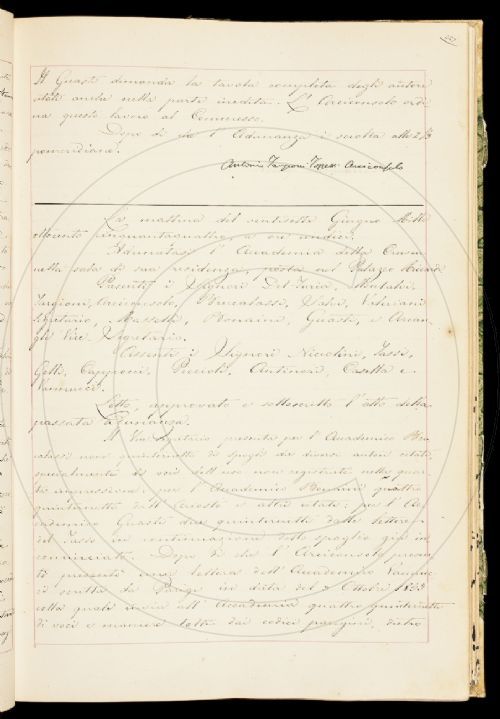 Il Guasti domanda la tavola completa degli autori
citati anche nella parte inedita. L' Arciconsolo ordi
na questo lavoro al Commesso.
Dopo di che l' Adunanza è sciolta alle 2 1/2
pomeridiane.
Antonio Targioni Tozzetti Arciconsolo
La mattina del ventisette Giugno Mille
ottocento cinquantaquattro, a ore undici.
Adunatasi l' Accademia della Crusca
nella sala di sua residenza, posta nel Palazzo
Presenti i Signori Del Furia,
Targioni, Arciconsolo, Bencalassi, Valeriani
Segretario, Masselli, Bonaini, Guasti, e Arcan-
geli Vice Segretario.
Assenti i Signori Niccolini,
Gelli, Capponi, Puccioli, Antinori, Casella e
Vannucci.
Letto, approvato e sottoscritto l' atto della
passata Adunanza.
Il Vice Segretario presenta per l' Accademico
nove quinternetti di spogli da diversi autori citati,
specialmente di voci dell' uso non registrate nella quar-
ta impressione: per l' Accademico Bonaini quattro
quinternetti dell' Ariosto e altri citati: per l' Ac-
cademico Guasti due quinternetti dalle lettere
del Tasso in continuazione dello spoglio già in
cominciato. Dopo di che l' Arciconsolo
presenta una lettera dell' Accademico Vannuc-
ci scritta da Parigi in data del Ottobre 1853
colla quale invia all' Accademia quattro quinternetti
di voci e maniere tolte dai codici parigini, dietro